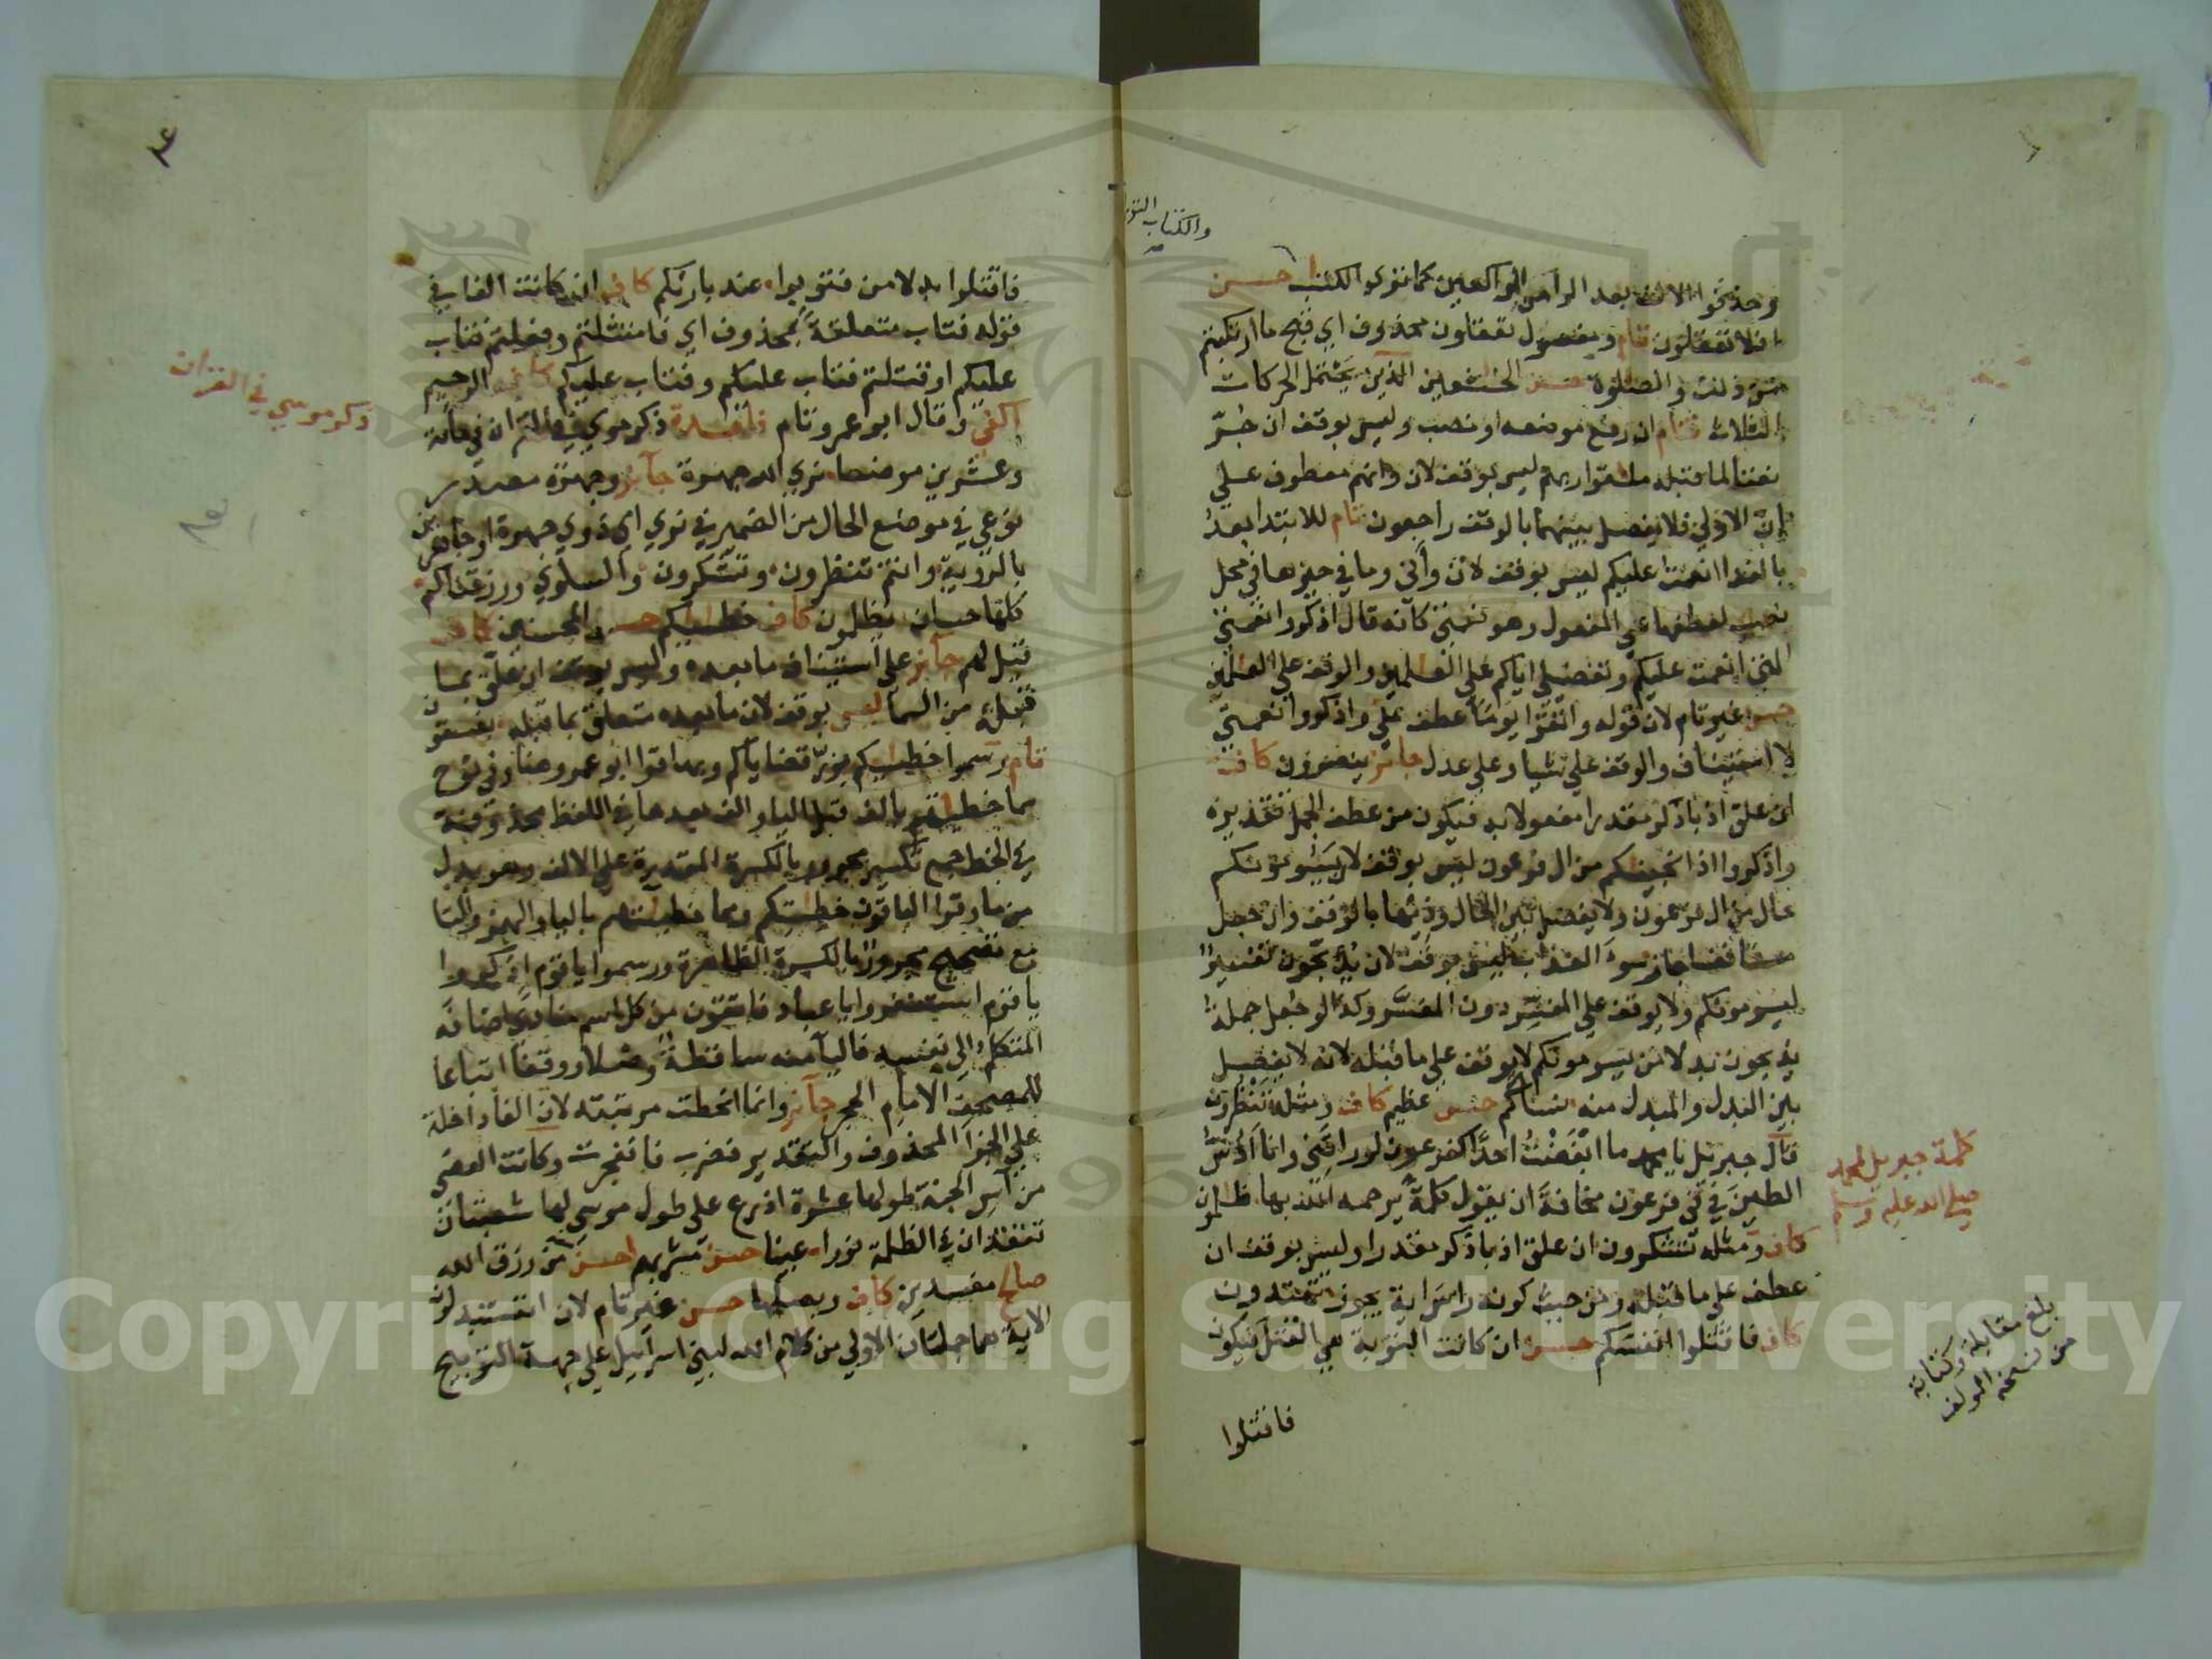 والكتاب
وحذفوا الالف بعد الراء من الراكعين كما ترى الكتب احسن
افلا تعقلون تام ومفعول تعقلون محذوف اي قبح ما ارتكبتم
من ذلك والصلوة حسن الخشعين الذين يحتمل الحركات
الثلاث فتام ان رفع موضعه او نصب وليس بوقف ان جر
نعتا لما قبله ملقوا ربهم ليس بوقف لان وانهم معطوف على
ان الاولى فلا يفصل بينهما بالوقف راجعون تام للابتدا بعد
بالندا انعمت عليكم ليس بوقف لان واني وما في حيزها في محل
نصب لعطفها على المفعول وهو نعمتي كانه قال اذكروا نعمتي
التي انعمت عليكم وتفضيلي اياكم على العلمين والوقف على العلمين
حسن غير تام لان قوله واتقوا يوما عطف على واذكروا نعمتي
لا استيناف والوقف على شيا وعلى عدل جائز ينصرون كاف
ان علق اذ باذكر مقدرا مفعولا به فيكون من عطف الجمل تقديره
واذكروا اذ انجينكم من ال فرعون ليس بوقف لان يسومونكم
حال من ال فرعون ولا يفصل بين الحال وذيها بالوقف وان جعل
مستانفا جاز سوء العذاب ليس بوقف لان يذبحون تفسير
ليسومونكم ولا يوقف على المفسر دون المفسر وكذا لو جعل جملة
يذبحون بدلا من يسومونكم لا يوقف على ما قبله لانه لا يفصل
بين البدل والمبدل منه نساكم حسن عظيم كاف ومثله تنظرون
قال جبريل يا محمد ما ابغضت احدا كفرعون لو رايتني وانا ادس
الطين في في فرعون مخافة ان يقول كلمة يرحمه الله بها ظلمون
كاف ومثله تشكرون ان علق اذ باذكر مقدرا وليس بوقف ان
عطف على ما قبله ومن حيث كونه راس اية يجوز تهتدون
كاف فاقتلوا انفسكم حسن ان كانت التوبة هي القتل فيكون
فاقتلوا
كلمة جبريل لمحمد
صلى الله عليه وسلم
بلغ مقابلة وكتابة
من نسخة المولف
فاقتلوا بدلا من فتوبوا عند بارئكم كاف ان كانت الفا في
قوله فتاب متعلقة بمحذوف اي فامتثلتم وفعلتم فتاب
عليكم او قتلتم فتاب عليكم وفتاب عليكم كاف الرحيم
اكفى وقال ابو عمرو تام فائدة ذكر موسى في القران في مائة
وعشرين موضعا نرى الله جهرة جائز وجهرة مصدر
نوعي في موضع الحال من الضمير في نرى اي ذوي جهرة او جاهرين
بالرؤية وانتم تنظرون وتشكرون والسلوى ورزقناكم
كلها حسان يظلمون كاف خطيكم حسن المحسنين كاف
قيل لهم جائز على استيناف ما بعده وليس بوقف ان علق بما
قبله من السما ليس بوقف لان ما بعده متعلق بما قبله يفسقون
تام رسموا خطيكم بوزن قضاياكم وبها قرا ابو عمرو هنا وفي نوح
مما خطيهم بالف قبل اليا والف بعدها في اللفظ محذوفة
في الخط جمع تكسير مجرور بالكسرة المقدرة على الالف وهو بدل
من ما وقرا الباقون خطيتكم ومما خطيئتهم بالياء والهمز والتا
جمع تصحيح مجرورا بالكسرة الظاهرة ورسموا يا قوم اذكروا
يا قوم استغفروا يا عباد فاتقون من كل اسم منادى اضافه
المتكلم الى نفسه فاليا منه ساقطة وصلا ووقفا اتباعا
للمصحف الامام الحجر جائز وانما انحطت مرتبته لان الفا داخلة
على الجزا المحذوف والتقدير فضرب فانفجرت وكانت العصى
من آس الجنة طولها عشرة اذرع على طول موسى لها شعبتان
تتقدان في الظلمة نورا عينا حسن مشربهم احسن من رزق الله
صالح مفسدين كاف وبصلها حسن غير تام لان اتستبدلون
الاية هما جملتان الاولى من كلام الله لبني اسرائيل على جهة التوبيخ
ذكر موسى في القران